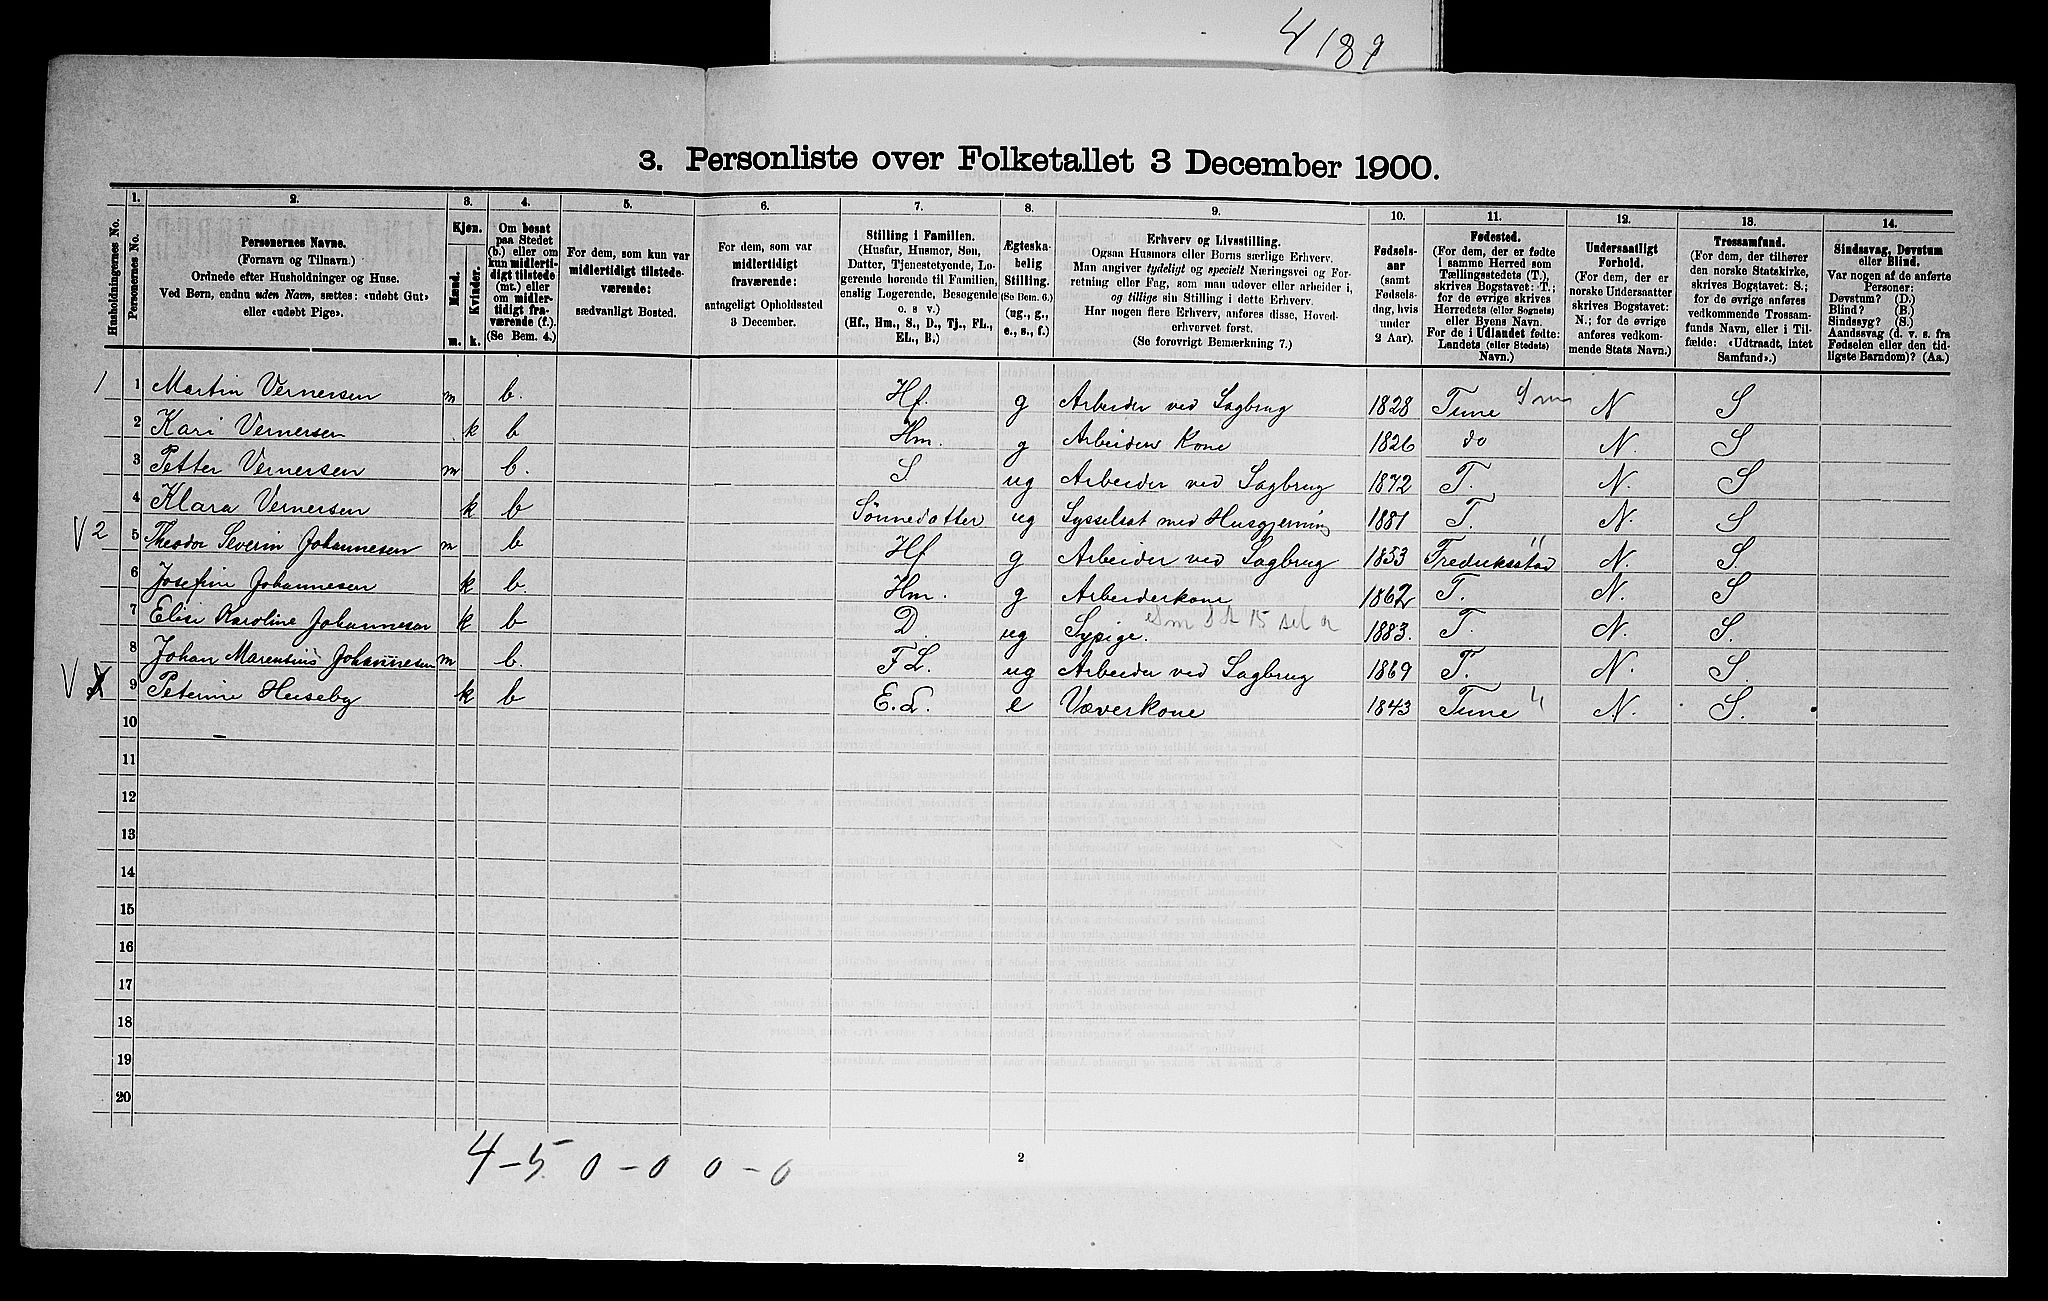 4 189
3. Personliste over Folketallet 3 December 1900.
Husholdningernes No.
1.
Personernes No.
2.
Personernes Navne.
(Fornavn og Tilnavn.)
Ordnede efter Husholdninger og Huse.
Ved Børn, endnu uden Navn, sættes: «udøbt Gut»
eller «udøbt Pige».
3.
Kjøn.
Mænd.
Kvinder.
m. k.
4.
Om bosat
paa Stedet
(b.) eller om
kun midlerti-
digt tilstede
(mt.) eller
om midler-
tidigt fra-
værende (f.).
(Se Bem. 4.)
5.
For dem, som kun var
midlertidigt tilstede-
værende:
sædvanligt Bosted.
6.
For dem, som var
midlertidigt
fraværende:
antageligt Opholdssted
3 December.
7.
Stilling i Familien.
(Husfar, Husmor, Søn,
Datter, Tjenestetyende, Lo-
gerende hørende til Familien,
enslig Logerende, Besøgende
o. s v.)
(Hf., Hm., S., D., Tj., FL.,
EL., B.)
8.
Ægteska-
belig
Stilling.
(Se Bem. 6.)
(ug., g.,
e., s., f.)
9.
Erhverv og Livsstilling.
Ogsaa Husmors eller Børns særlige Erhverv.
Man angiver tydeligt og specielt Næringsvei og For-
retning eller Fag, som man udøver eller arbeider i,
og tillige sin Stilling i dette Erhverv.
Har nogen flere Erhverv, anføres disse, Hoved-
erhvervet først.
(Se forøvrigt Bemærkning 7.)
10.
Fødsels-
aar
(samt
Fødsels-
dag, hvis
under
2 Aar).
11.
Fødested.
(For dem, der er fødte
i samme Herred som
Tællingsstedets (T.),
skrives Bogstavet: T.;
for de øvrige skrives
Herredets (eller Sognets)
eller Byens Navn.
For de i Udlandet fødte:
Landets (eller Stedets)
Navn.)
12.
Undersaatligt
Forhold.
(For dem, der er
norske Undersaatter
skrives Bogstavet:
N.; for de øvrige
anføres vedkom-
mende Stats Navn.)
13.
Trossamfund.
(For dem, der tilhører
den norske Statskirke,
skrives Bogstavet: S.;
for de øvrige anføres
vedkommende Trossam-
funds Navn, eller i Til-
fælde: «Udtraadt, intet
Samfund».)
14.
Sindssvag, Døvstum
eller Blind.
Var nogen af de anførte
Personer:
Døvstum? (D.)
Blind? (B.)
Sindssyg? (S.)
Aandssvag (d. v. s. fra
Fødselen eller den tid-
ligste Barndom)? (Aa.)
1 1 Martin Vernersen m b. Hf. g Arbeider ved Sagbrug 1828 Tune N S
2 Kari Vernersen k b Hm. g Arbeiders Kone 1826 do N. S
3 Petter Vernersen m b. S ug Arbeider ved Sagbrug 1872 T. N. S
4 Klara Vernersen k b Sønnedatter ug Sysselsat med Husgjerning 1881 T. N. S
V 2 5 Theodor Severin Johannesen m b Hf g Arbeider ved Sagbrug 1853 Fredriksstad N. S.
6 Josefine Johannesen k b. Hm. g Arbeiderkone 1862 T. N. S
7 Elise Karoline Johannesen k b D. ug Sypige. 1883. T. N. S.
8 Johan Marensius Johannesen m b. FL. ug Arbeider ved Sagbrug 1869 T. N. S.
V 9 Peterine Huseby k b E.L. e Væverkone 1843 Tune N. S.
10
11
12
13
14
15
16
17
18
19
20
4-5 0-0 0-0
2